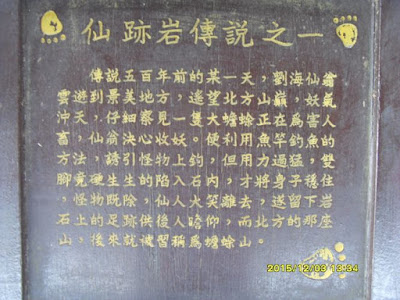 仙跡岩傳說之一
傳說五百年前的某一天,劉海仙翁
雲遊到景美地方,遙望北方山巔,妖氣
沖天,仔細察見一隻大蟾蜍在爲害人
畜,仙翁決心收妖。便利用竿釣魚的
方法,誘引怪物上鈎,但用力過猛,雙
腳竟硬生生的陷入石內,才將身子穩住
,怪物既除,仙人大笑離去,遂留下岩
石上的足跡供後人瞻仰,而北方的那座
山,後來就被習稱爲蟾蜍山。
2015/12/03 13:34